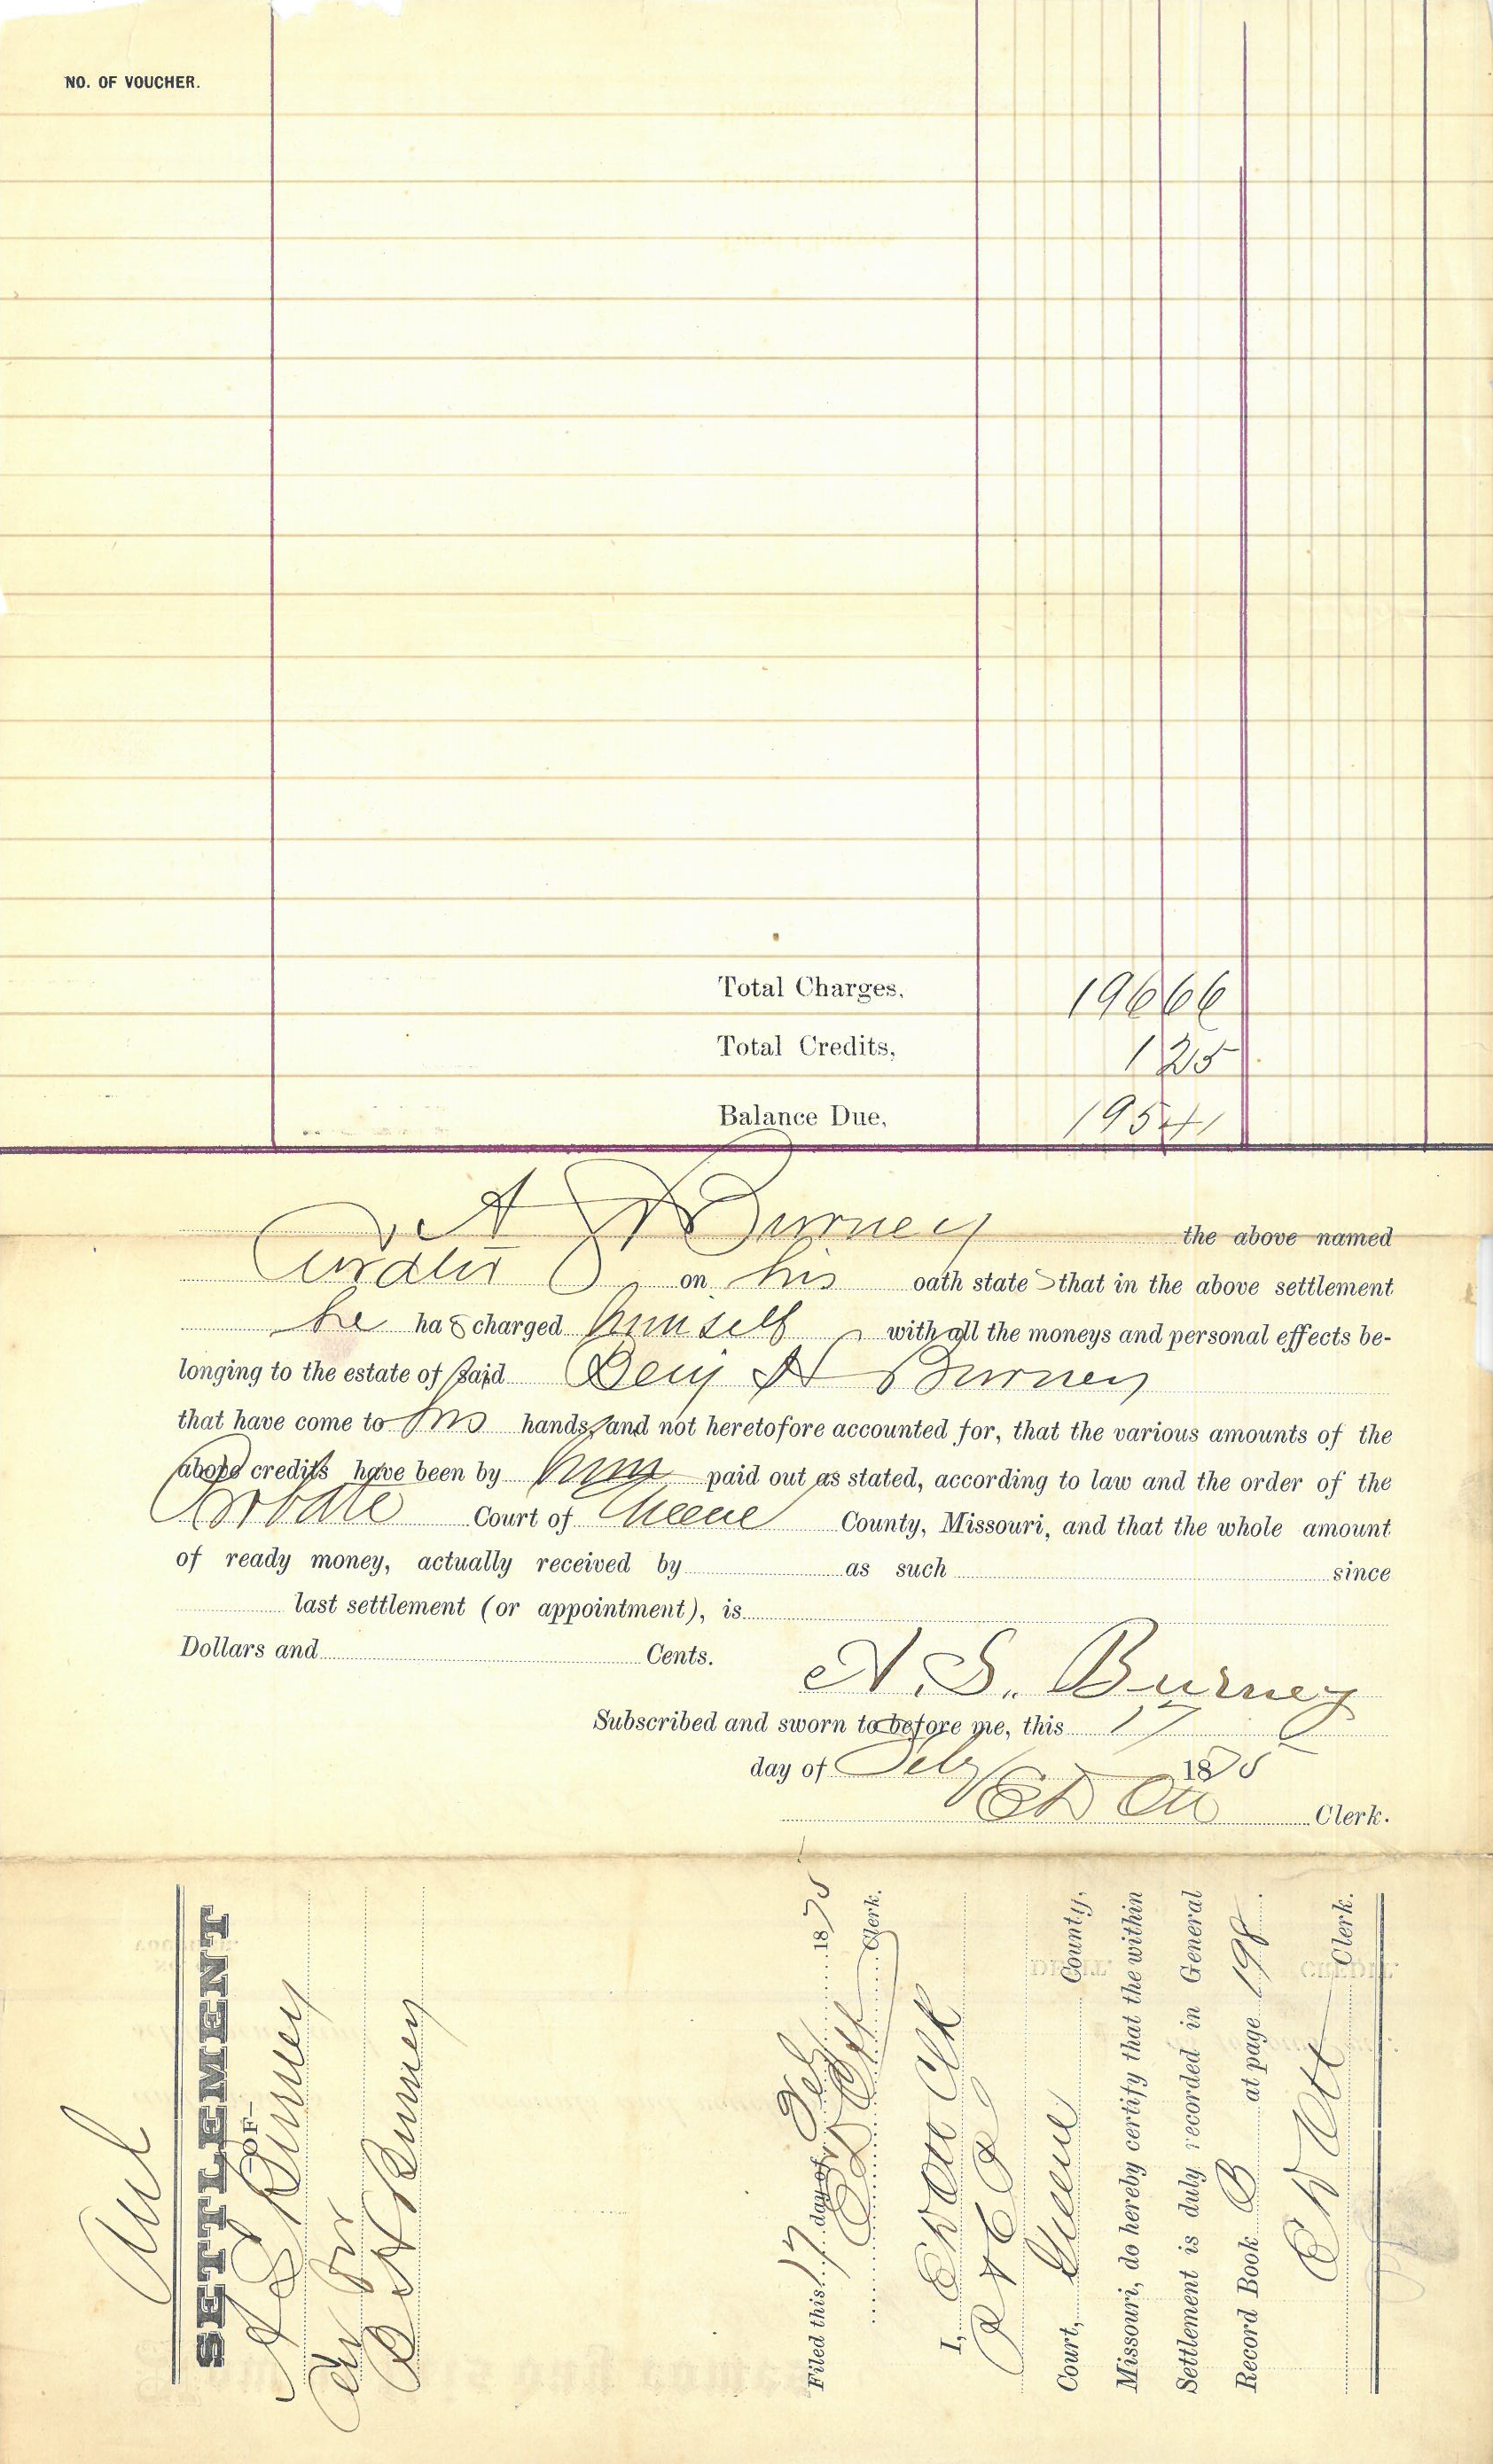 NO. OF VOUCHER.
Total Charges, 196 66
Total Credits, 1 25
Balance Due, 195 41
A S Burney the above named
on his oath states that in the above settlement
he has charged himself with all the moneys and personal effects be-
longing to the estate of said Benj H Burney
that have come to his hands, and not heretofore accounted for, that the various amounts of the
above credits have been by him paid out as stated, according to law and the order of the
Probate Court of Greene County, Missouri, and that the whole amount
of ready money, actually received by as such since
last settlement (or appointment), is
Dollars and Cents.
A. S. Burney
Subscribed and sworn to before me, this 17
day of Feby 1875
E D Ott Clerk.
SETTLEMENT
—OF—
A S Burney
B H Burney
Filed this 17 day of Feb 1875
E D Ott Clerk.
I, E D Ott Clk
Court, Greene County,
Missouri, do hereby certify that the within
Settlement is duly recorded in General
Record Book B at page 198.
E D Ott Clerk.